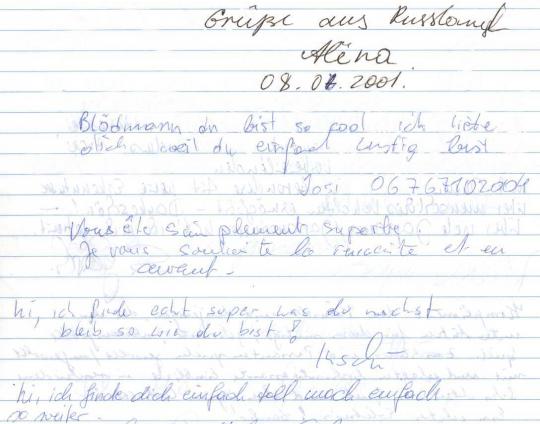 Grüße aus Russland
Alëna
08. 01. 2001.
Blödmann du bist so cool ich liebe
dich weil du einfach lustig bist
Josi 06767102004
Vous êtes simplement superbe.
Je vous souhaite la réussite et en
avant.
hi, ich finde echt super was du machst
bleib so wie du bist!
hi, ich finde dich einfach toll mach einfach
so weiter.